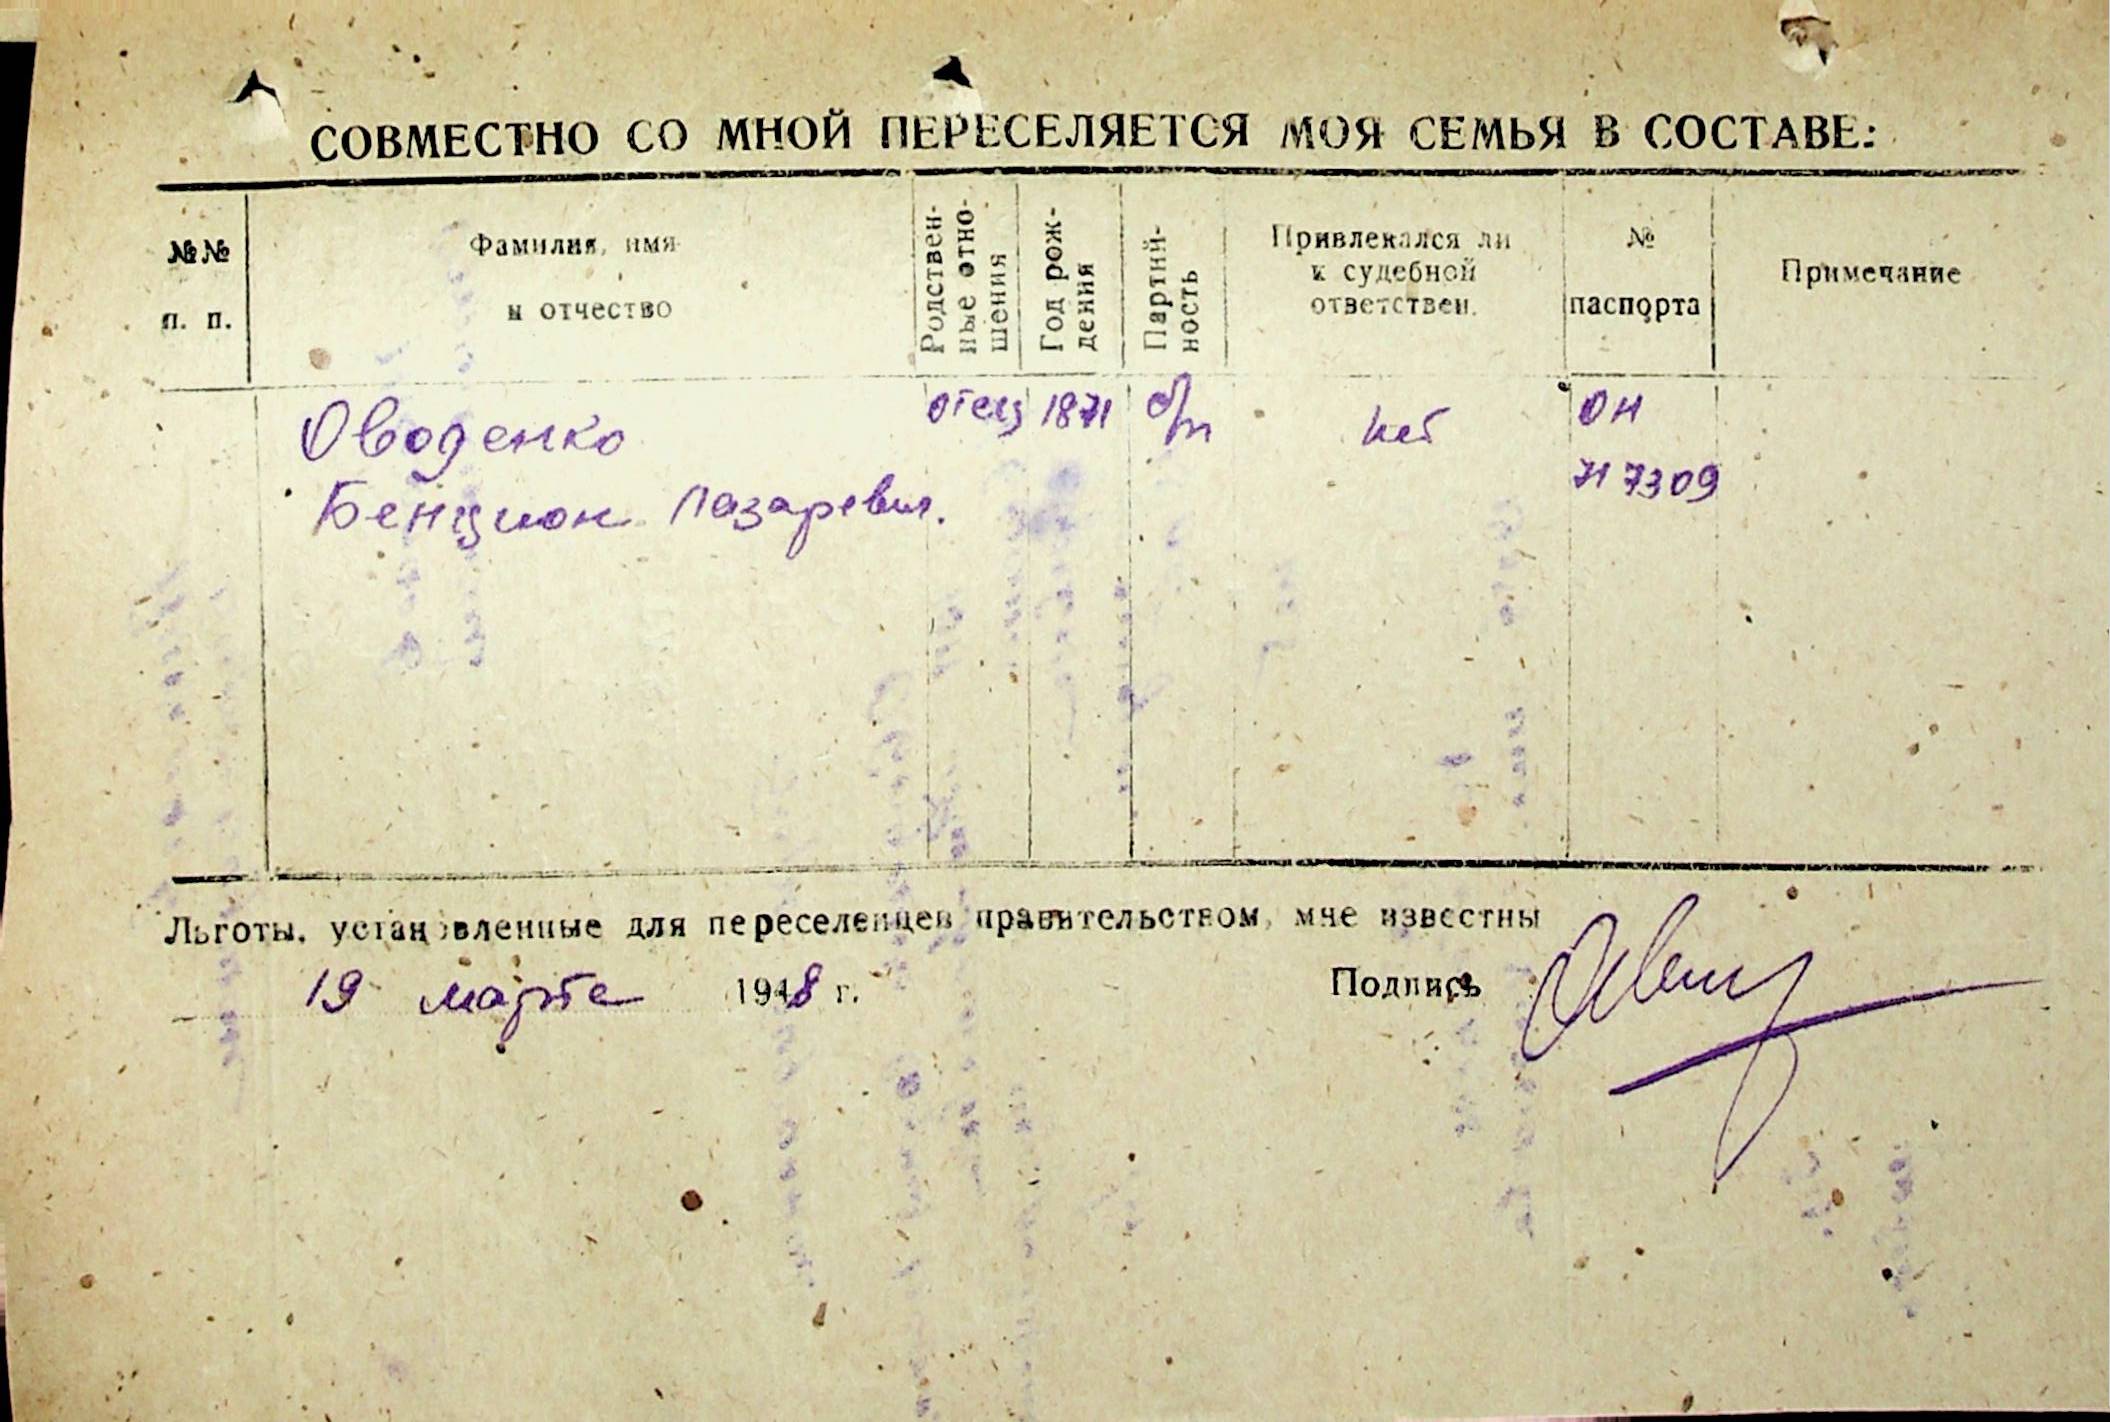 СОВМЕСТНО СО МНОЙ ПЕРЕСЕЛЯЕТСЯ МОЯ СЕМЬЯ В СОСТАВЕ:
№№ п. п.
Фамилия, имя и отчество
Родствен-
ные отно-
шения
Год рож-
дения
Партий-
ность
Привлекался ли
к судебной
ответствен.
№
паспорта
Примечание
Оводенко отец 1871 б/п нет ОН
Бенцион Лазаревич. 717309
Льготы, установленные для переселенцев правительством, мне известны
19 марта 1948 г. Подпись